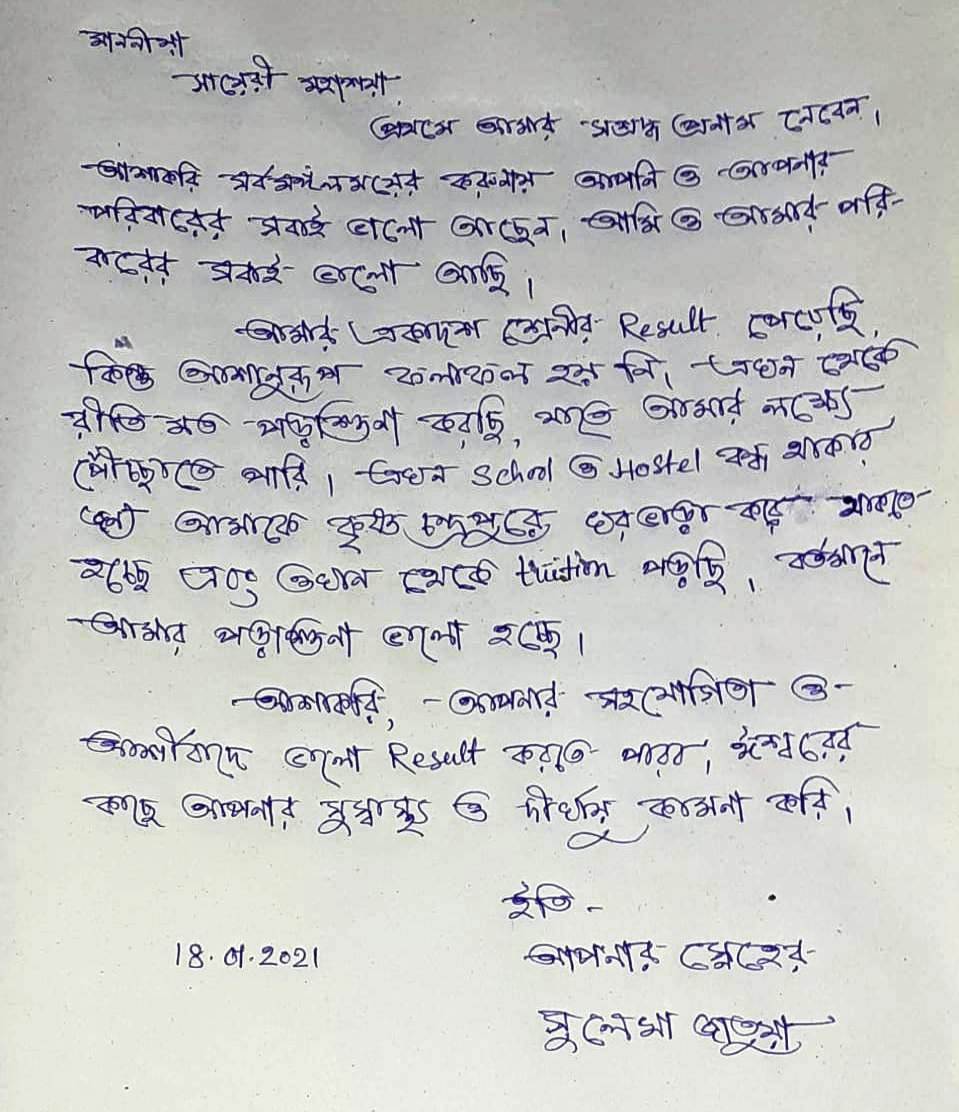 মাননীয়া
সায়েরী মহাশয়া,
প্রথমে আমার সশ্রদ্ধ প্রনাম নেবেন।
আশাকরি সর্বমঙ্গলময়ের করুনায় আপনি ও আপনার
পরিবারের সবাই ভালো আছেন। আমি ও আমার পরি-
বারের সবাই ভালো আছি।
আমার একাদশ শ্রেনীর Result পেয়েছি,
কিন্তু আশানুরূপ ফলাফল হয় নি। এখন থেকে
রীতি মত পড়াশুনা করছি, যাতে আমার লক্ষ্যে
পৌঁছাতে পারি। এখন School ও Hostel বন্ধ থাকার
জন্য আমাকে কৃষ্ণ চন্দ্রপুরে ঘরভাড়া করে থাকতে
হচ্ছে এবং ওখান থেকে tuition পড়ছি। বর্তমানে
আমার পড়াশুনা ভালো হচ্ছে।
আশাকরি, আপনার সহযোগিতা ও
আশীর্বাদে ভালো Result করতে পারব। ঈশ্বরের
কাছে আপনার সুস্বাস্থ্য ও দীর্ঘায়ু কামনা করি।
ইতি -
আপনার স্নেহের
18. .2021
সুলেমা জাতুয়া